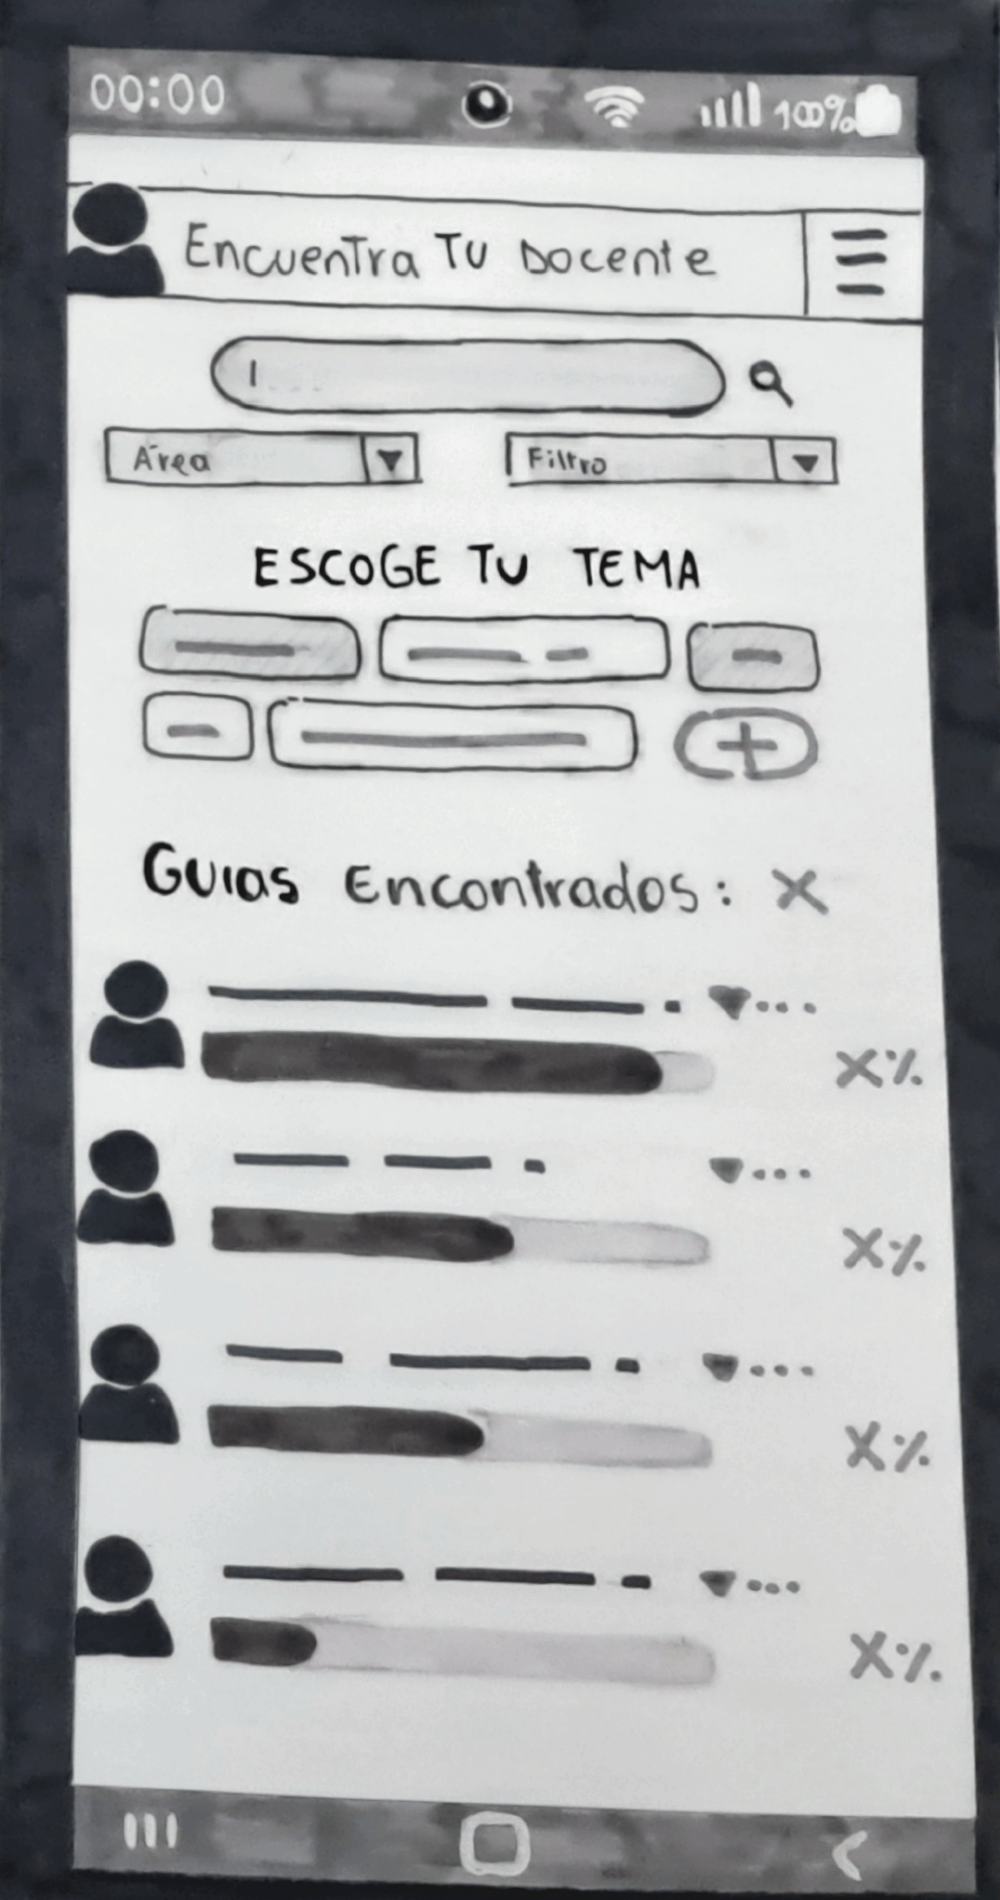 00:00 100%
Encuentra Tu Docente
Área Filtro
ESCOGE TU TEMA
Guias Encontrados: X
X%
X%
X%
X%